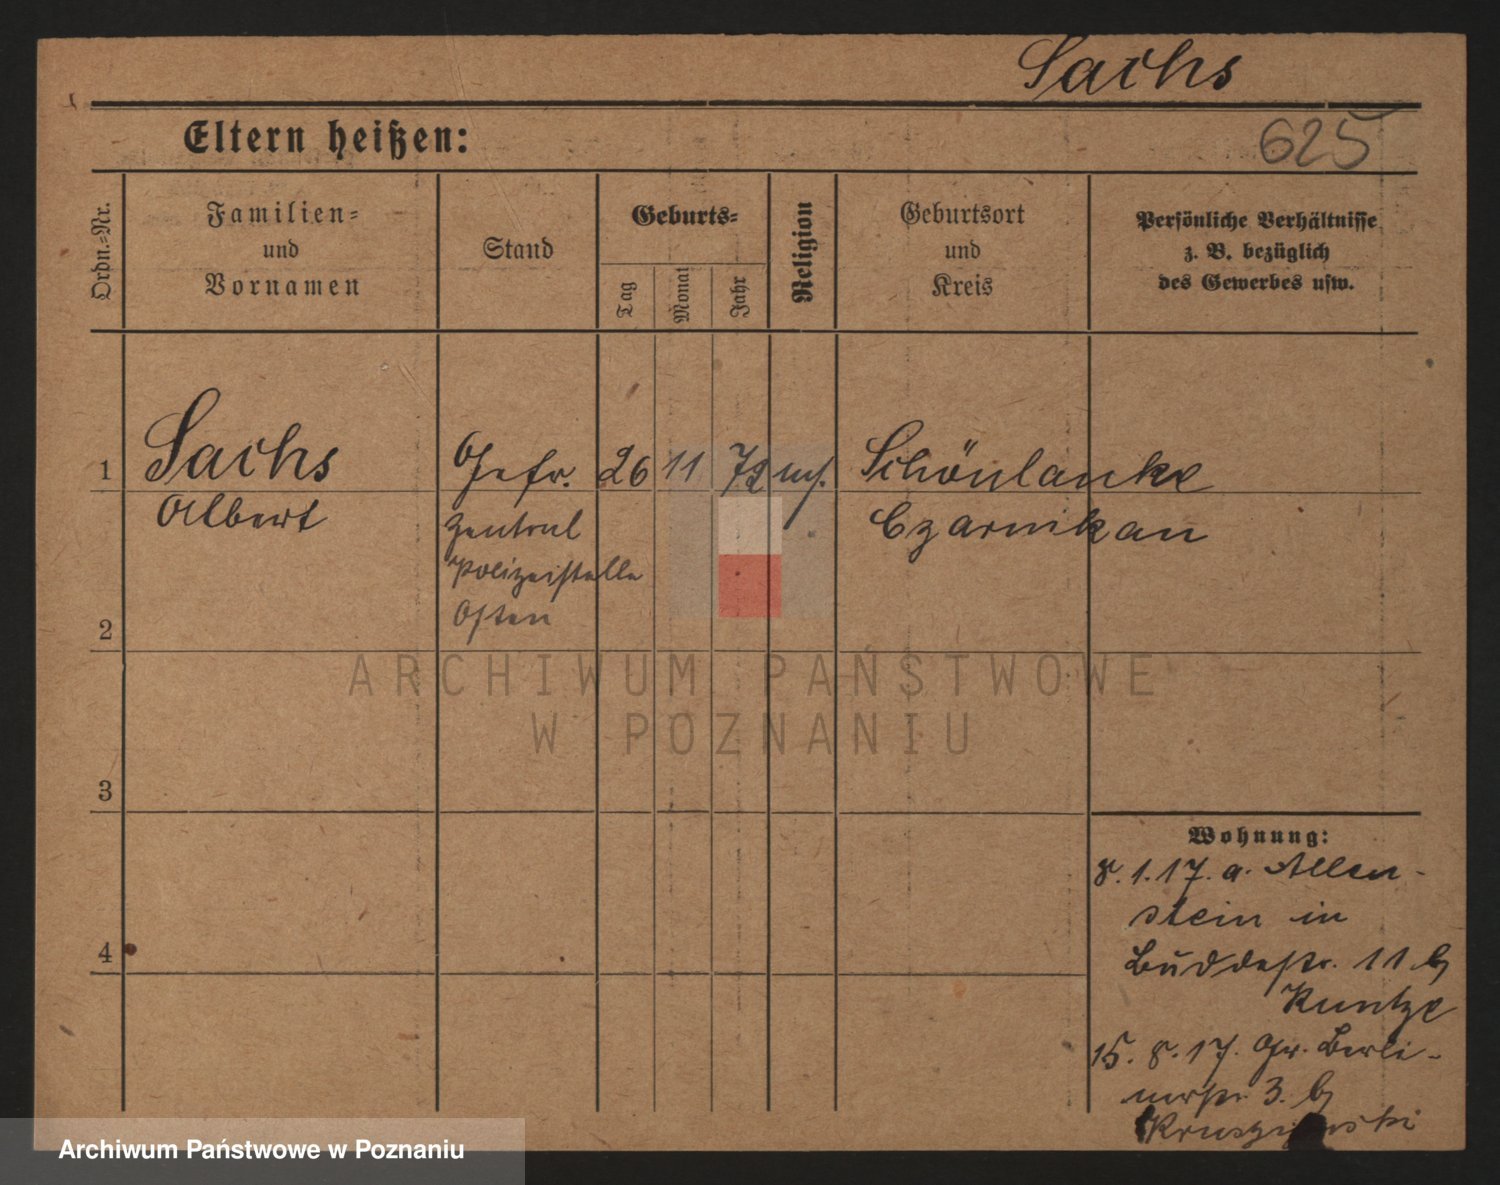 Sachs
Eltern heißen:
625
Ordn.=Nr.
Familien=
und
Vornamen
Stand
Geburts=
Tag
Monat
Jahr
Religion
Geburtsort
und
Kreis
Persönliche Verhältnisse
z. B. bezüglich
des Gewerbes usw.
1
Sachs
Gefr.
26
11
72
Schönlanke
Albert
Zentral
Czarnikau
Polizeistelle
Osten
2
ARCHIWUM PAŃSTWOWE
W POZNANIU
3
4
Wohnung:
8. 1. 17. a. Allen-
stein in
Buddestr. 11 b/
Kuntze
15. 8. 17. Gr. Berli-
nerstr. 3. b/
Archiwum Państwowe w Poznaniu